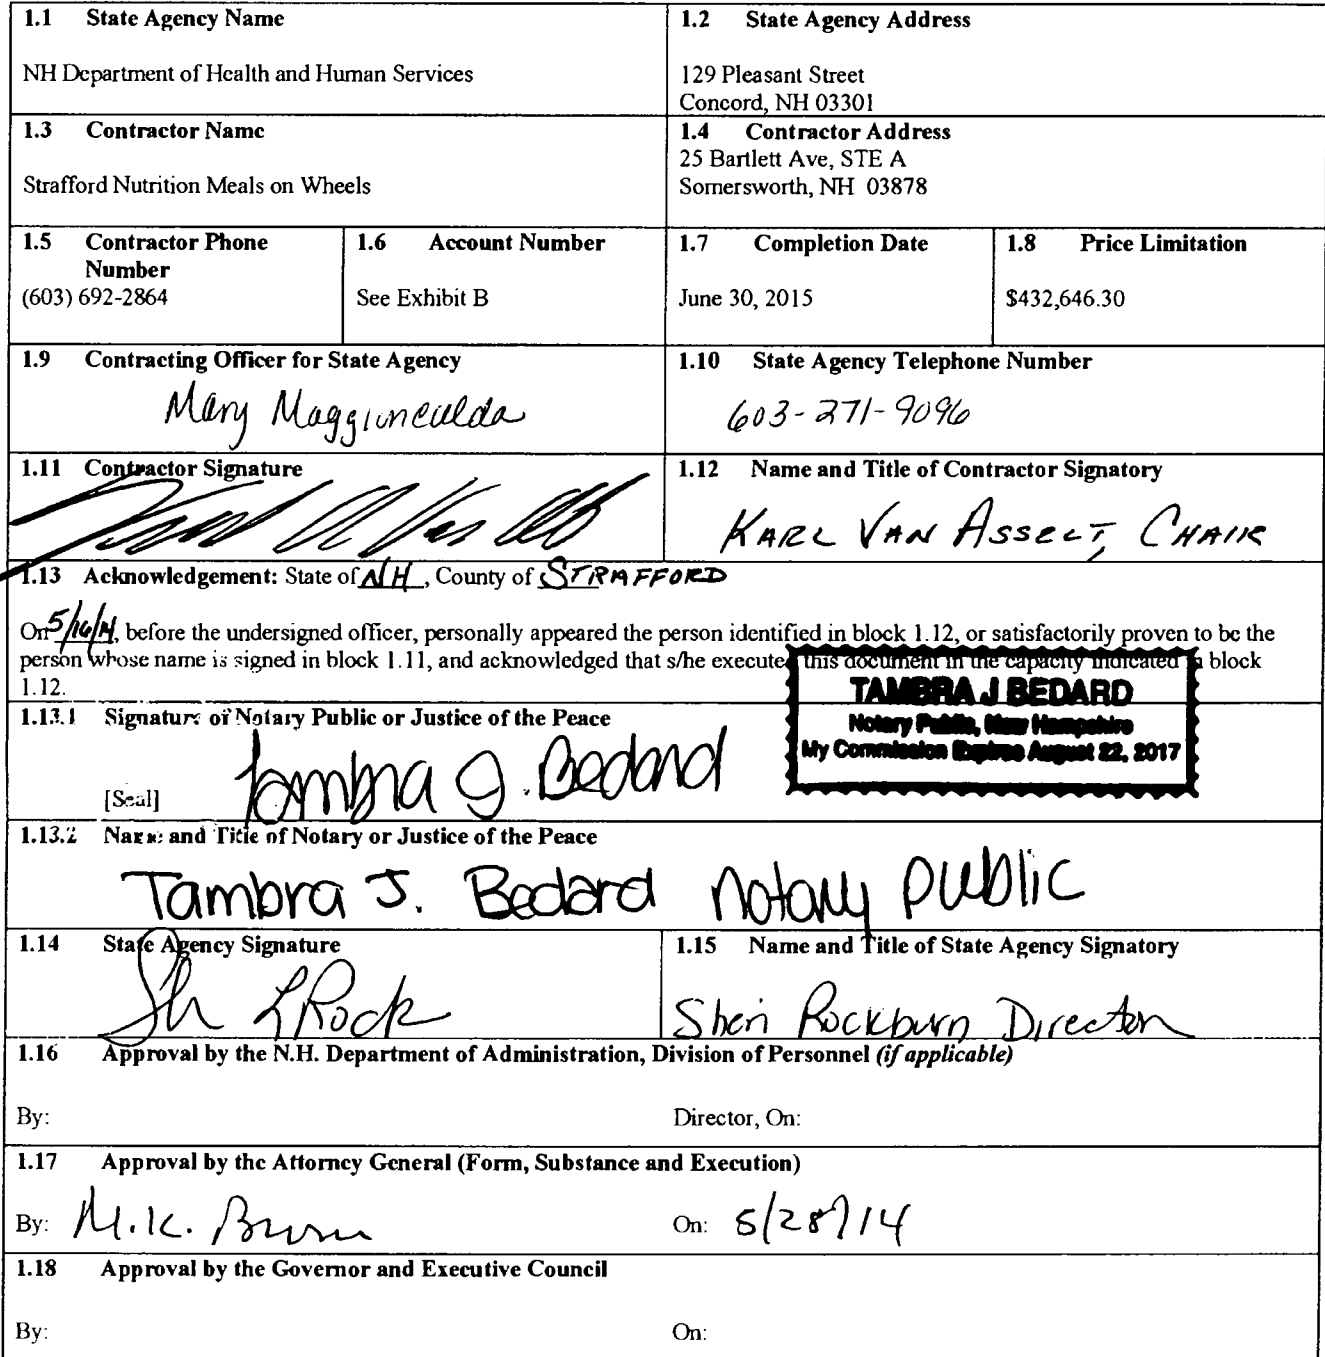 1.1 State Agency Name
NH Department of Health and Human Services
1.2 State Agency Address
129 Pleasant Street
Concord, NH 03301
1.3 Contractor Name
Strafford Nutrition Meals on Wheels
1.4 Contractor Address
25 Bartlett Ave, STE A
Somersworth, NH 03878
1.5 Contractor Phone
Number
(603) 692-2864
1.6 Account Number
See Exhibit B
1.7 Completion Date
June 30, 2015
1.8 Price Limitation
$432,646.30
1.9 Contracting Officer for State Agency
Mary
1.10 State Agency Telephone Number
603-271-9096
1.11 Contractor Signature
1.12 Name and Title of Contractor Signatory
KARL VAN ASSELT, CHAIR
1.13 Acknowledgement: State of NH, County of STRAFFORD
On 5/16/14, before the undersigned officer, personally appeared the person identified in block 1.12, or satisfactorily proven to be the
person whose name is signed in block 1.11, and acknowledged that s/he executed this document in the capacity indicated in block
1.12.
TAMBRA J BEDARD
Notary Public, New Hampshire
My Commission Expires August 22, 2017
1.13.1 Signature of Notary Public or Justice of the Peace
Tambra J. Bedard
[Seal]
1.13.2 Name and Title of Notary or Justice of the Peace
Tambra J. Bedard Notary Public
1.14 State Agency Signature
Sh L Rock
1.15 Name and Title of State Agency Signatory
Sheri Rockburn Director
1.16 Approval by the N.H. Department of Administration, Division of Personnel (if applicable)
By: Director, On:
1.17 Approval by the Attorney General (Form, Substance and Execution)
By: M.K. Brown On: 5/28/14
1.18 Approval by the Governor and Executive Council
By: On: